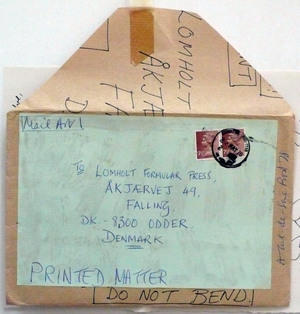 LOMHOLT
ÅKJÆ
FA
D
Mail Art /
To LOMHOLT FORMULAR PRESS,
ÅKJÆRVEJ 49,
FALLING.
DK.-8300 ODDER.
DENMARK
PRINTED MATTER
DO NOT BEND.